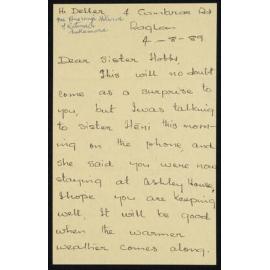 H. Deller 4 Road
Raglan
4-8-89
Dear Sister Hobbs,
This will no doubt
come as a surprise to
you, but I was talking
to Sister Heni this morn-
ing on the phone, and
she said you were now
staying at Ashley House,
I hope you are keeping
well. It will be good
when the warmer
weather comes along.